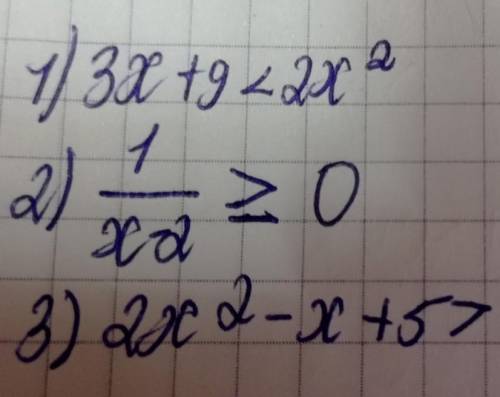 1) 3x + 9 < 2x²
2) 1/(x-2) ≥ 0
3) 2x² - x + 5 >